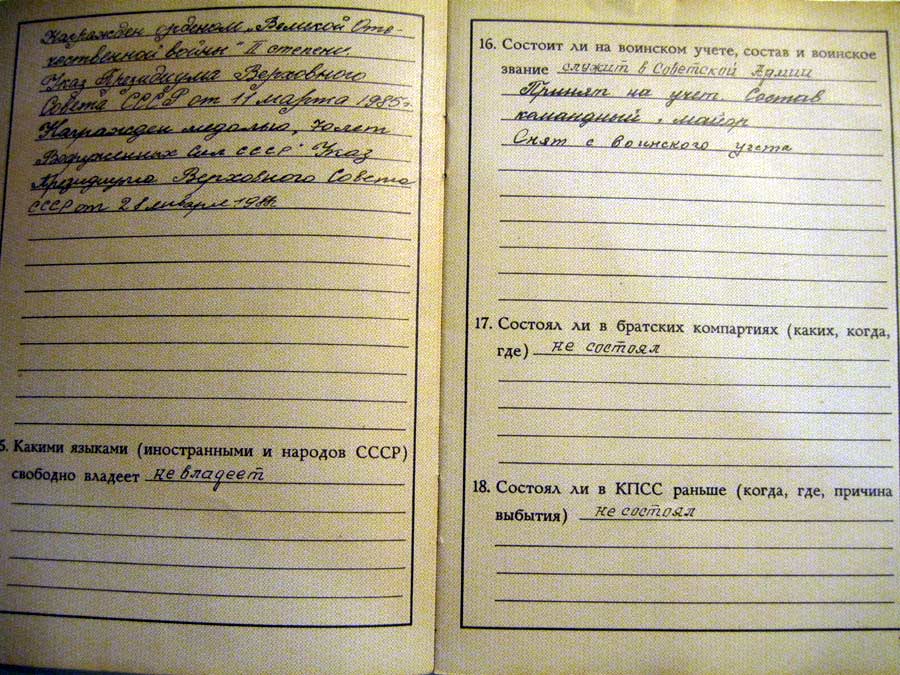 Награжден орденом „Великой Оте-
чественной войны" II степени.
Указ Президиума Верховного
Совета СССР от 11 марта 1985г.
Награжден медалью „70 лет
Вооруженных Сил СССР" Указ
Президиума Верховного Совета
СССР от 28 января 1988г.
5. Какими языками (иностранными и народов СССР)
свободно владеет не владеет
16. Состоит ли на воинском учете, состав и воинское
звание служит в Советской Армии
Принят на учет. Состав
командный, майор
Снят с воинского учета
17. Состоял ли в братских компартиях (каких, когда,
где) не состоял
18. Состоял ли в КПСС раньше (когда, где, причина
выбытия) не состоял